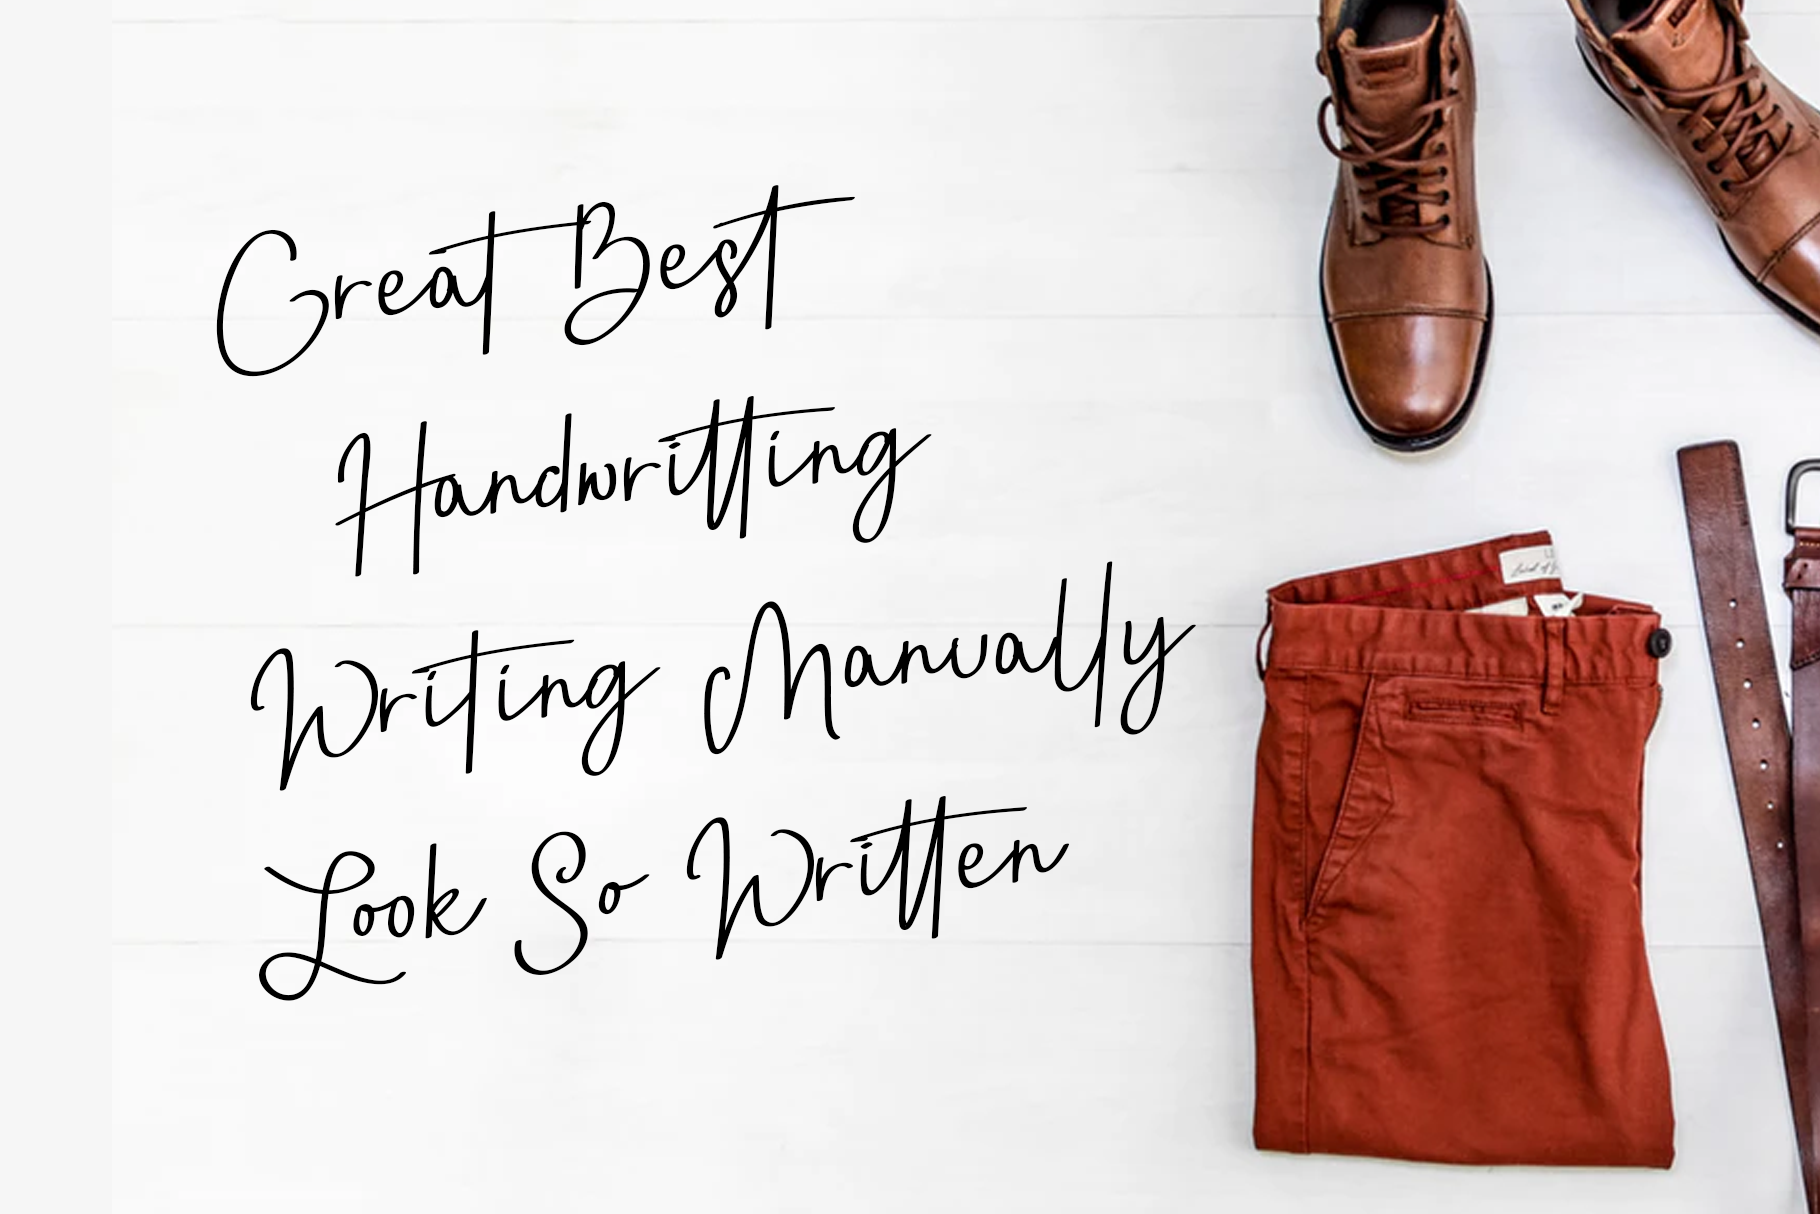 Great Best
Handwritting
Writing Manually
Look So Written